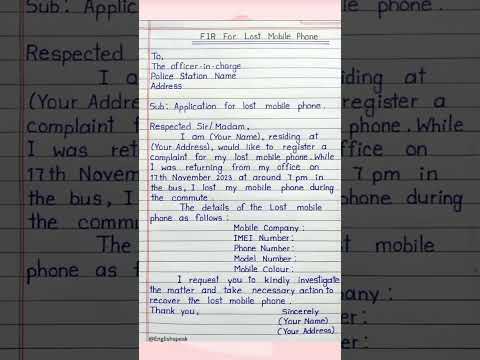 FIR For Lost Mobile Phone
To,
The officer-in-charge
Police Station Name
Address
Sub: Application for lost mobile phone.
Respected Sir/Madam,
I am (Your Name), residing at
(Your Address), would like to register a
complaint for my lost mobile phone. While
I was returning from my office on
17th November 2023 at around 7 pm in
the bus, I lost my mobile phone during
the commute.
The details of the Lost mobile
phone as follows:
Mobile Company:
IMEI Number:
Phone Number:
Model Number:
Mobile Colour:
I request you to kindly investigate
the matter and take necessary action to
recover the lost mobile phone.
Thank you, Sincerely
(Your Name)
(Your Address)
@Englishspeak